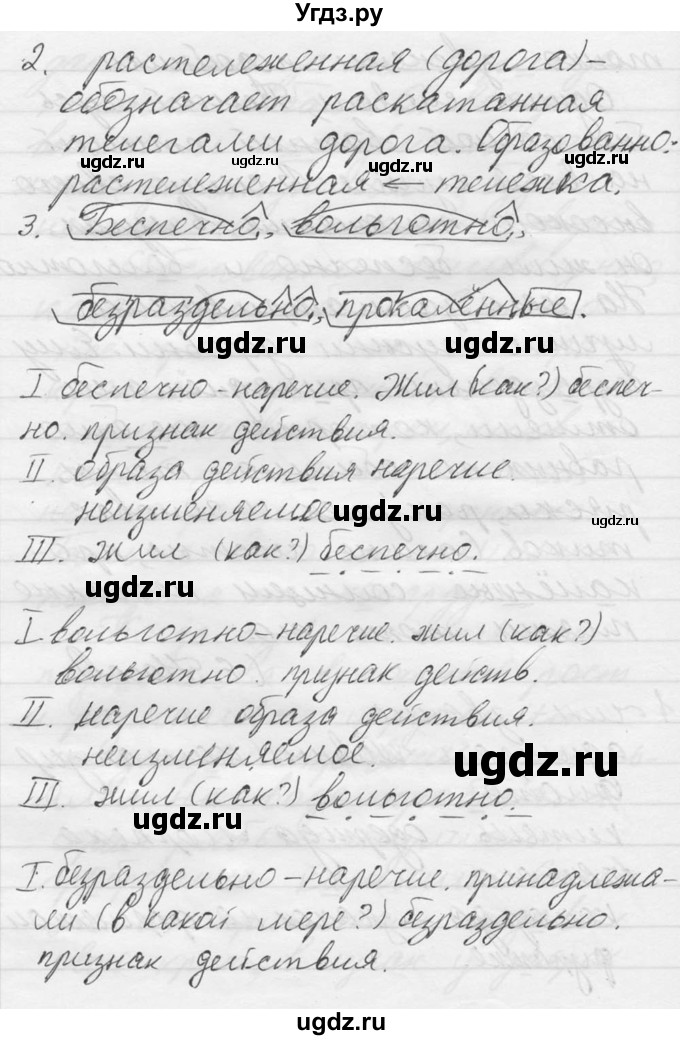 Угдз.ру
2. растележенная (дорога) –
обозначает раскатанная
телегами дорога. Образованно:
ugdz.ru ugdz.ru ugdz.ru
растележенная ← тележка.
3. Беспечно, вольготно,
безраздельно, прокалённые.
ugdz.ru ugdz.ru
I беспечно – наречие. Жил (как?) беспеч-
но. признак действия.
II. образа действия наречие.
неизменяемое ugdz.ru ugdz.ru
III. жил (как?) беспечно.
ugdz.ru
I вольготно – наречие. жил (как?)
вольготно. признак действ.
II. наречие образа действия.
неизменяемое. ugdz.ru
III. жил (как?) вольготно.
ugdz.ru
I. безраздельно – наречие. принадлежа-
ли (в какой мере?) безраздельно.
признак действия.
ugdz.ru
ugdz.ru